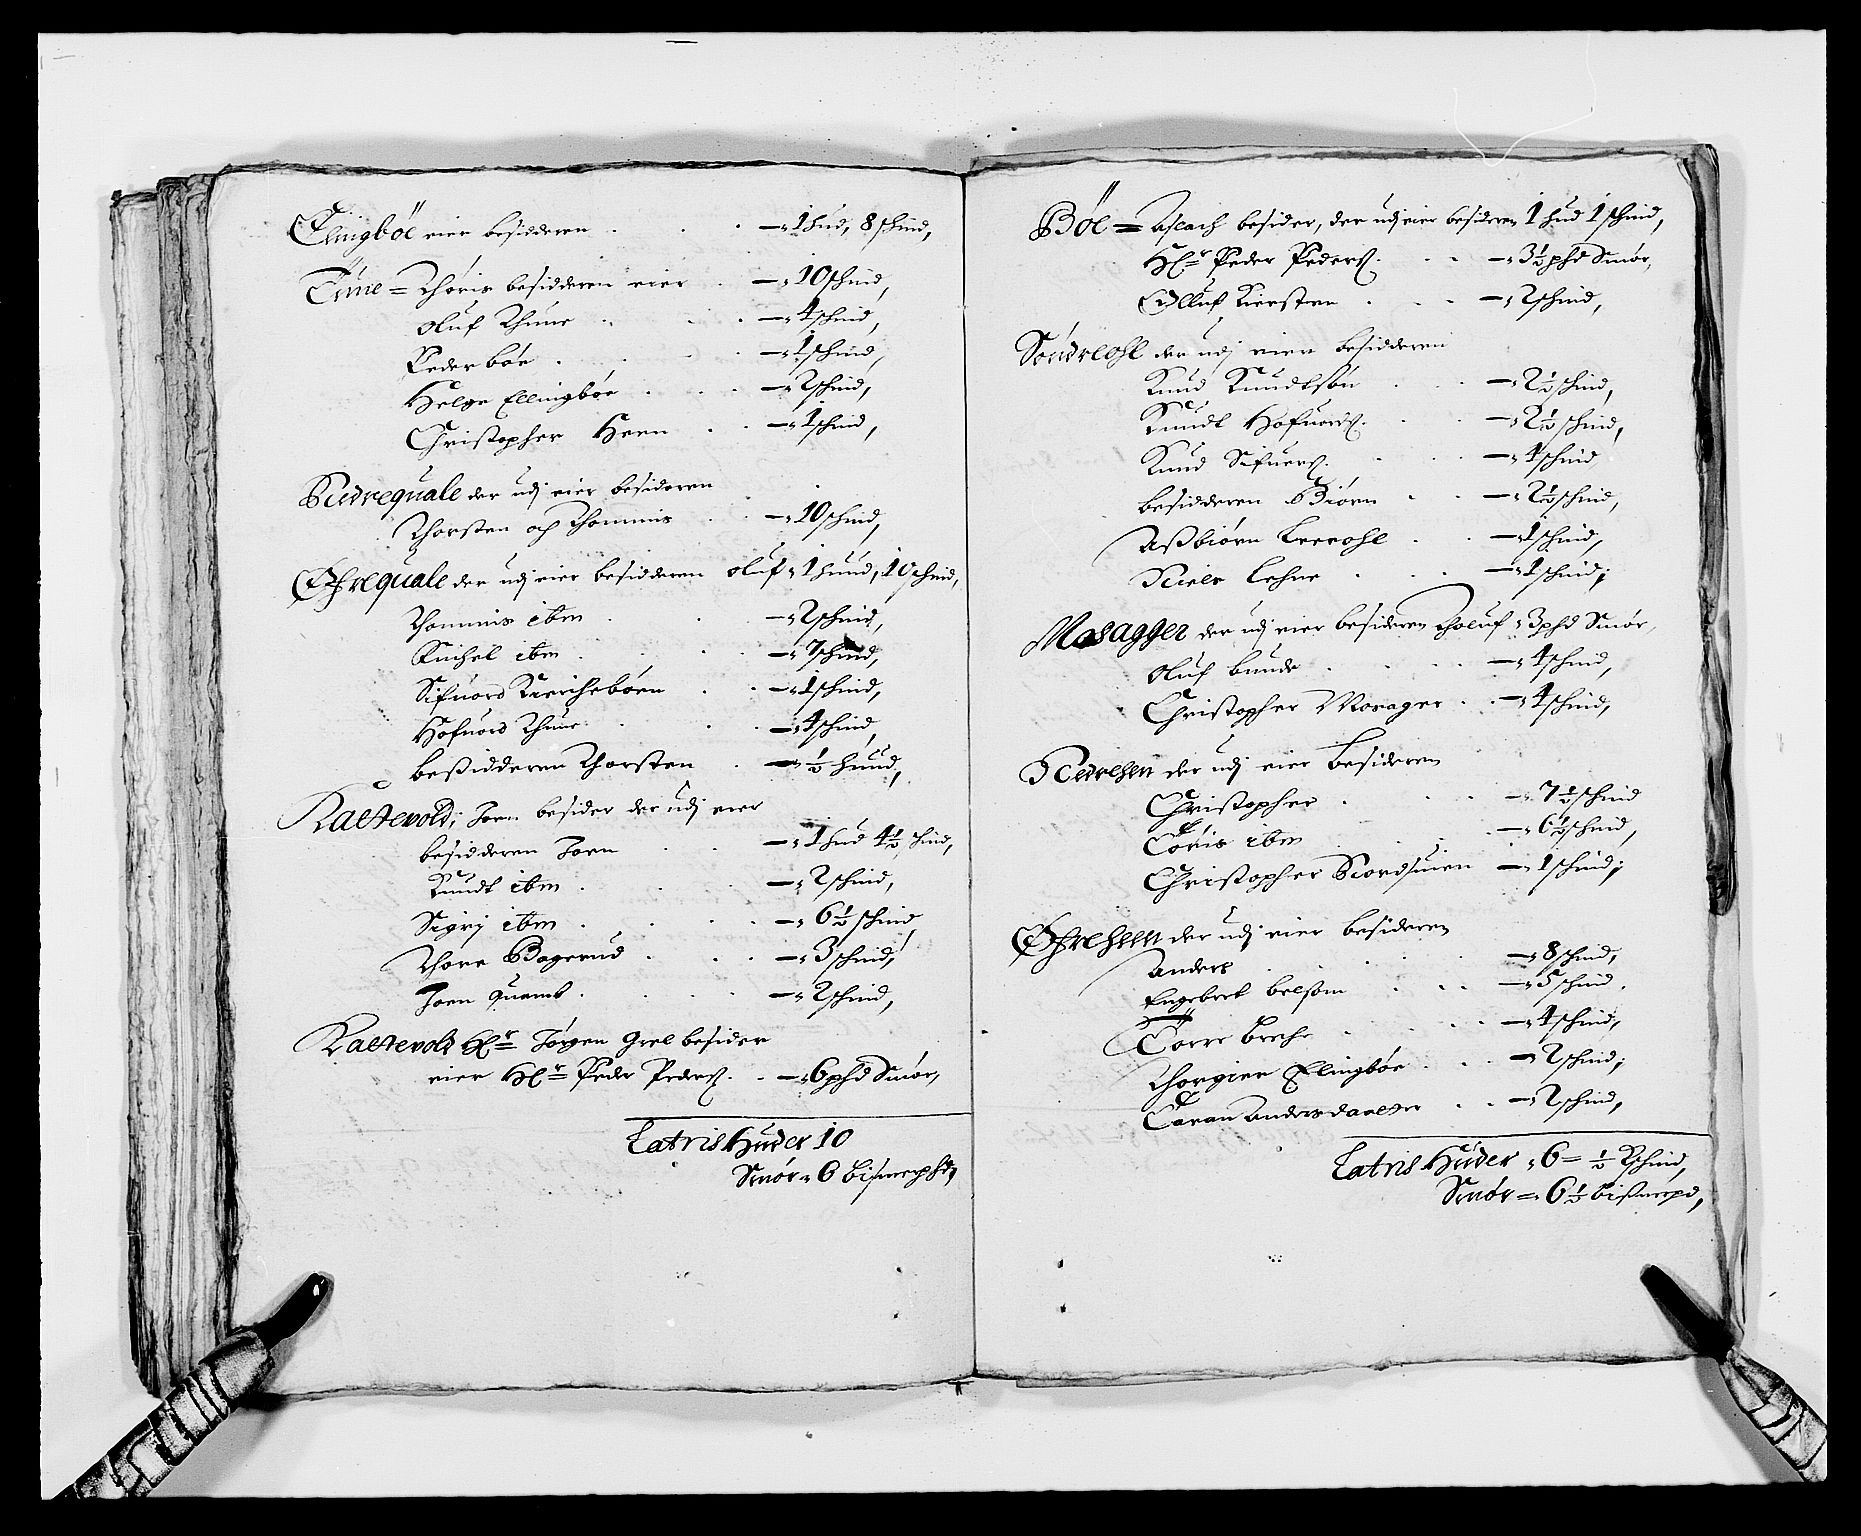 Ellingböe eier besidderen - 1 hud, 8 schind,
Tune = Thoris besidderen eier - 10 schind,
Oluf Thune - 4 schind,
Peder böe - 1 schind,
Helge Ellingböe - 2 schind,
Christopher Hern - 1 schind,
Nedrequale der udj eier besideren
Thorsten och Thommis - 10 schind,
Øfrequale der udj eier besidderen Oluf - 1 huud, 10 schind,
Thommis ibm - 2 schind,
Kichel ibm - 7 schind,
Sifuord Kiercheböen - 1 schind,
Hofuord Thune - 4 schind,
beßidderen Thorsten - ½ huud,
Kaltevold; Joen besider der udj eier
besidderen Joen - 1 hud 4½ schind,
Knudt ibm - 2 schind,
Sigrj ibm - 6½ schind
Thore Bagerud - 3 schind,
Joen Quamb - 2 schind,
Kaltevold Hr Jörgen Grel besider
eier Hr Peder Peders. - 6 phd Smör,
Latris Huder 10
Smör - 6 bismerphd,
Böe = Aslach besider, der udj eier besideren 1 hud 1 schind,
Hr Peder Peders. - 3½ phd Smör,
Olluf Kiersten - 2 schind,
Söndreohl der udj eier besidderen
Knud Knudtsön - 2½ schind,
Knudt Hofuords. - 2½ schind,
Knud Sifuers. - 4 schind
besidderen Biörn - 2½ schind,
Aßbiörn Breeohl - 1 schind,
Niels Lehne - 1 schind;
Mosagger der udj eier besideren Tholuf - 3 phd Smör,
Oluf bunde - 4 schind,
Christopher Mosager - 4 schind,
Nedrehen der udj eier besideren
Christopher - 7½ schind
Töris ibm - 6½ schind,
Christopher Nordsuien - 1 schind;
Øfrehen der udj eier besideren
Anders - 8 schind,
Engebret belsom - 5 schind.
Torre Breche - 4 schind,
Thorgier Ellingböe - 2 schind;
Taran Andersdaatter - 2 schind,
Latris Huder - 6 = ½ schind,
Smör = 6½ bismerpd,